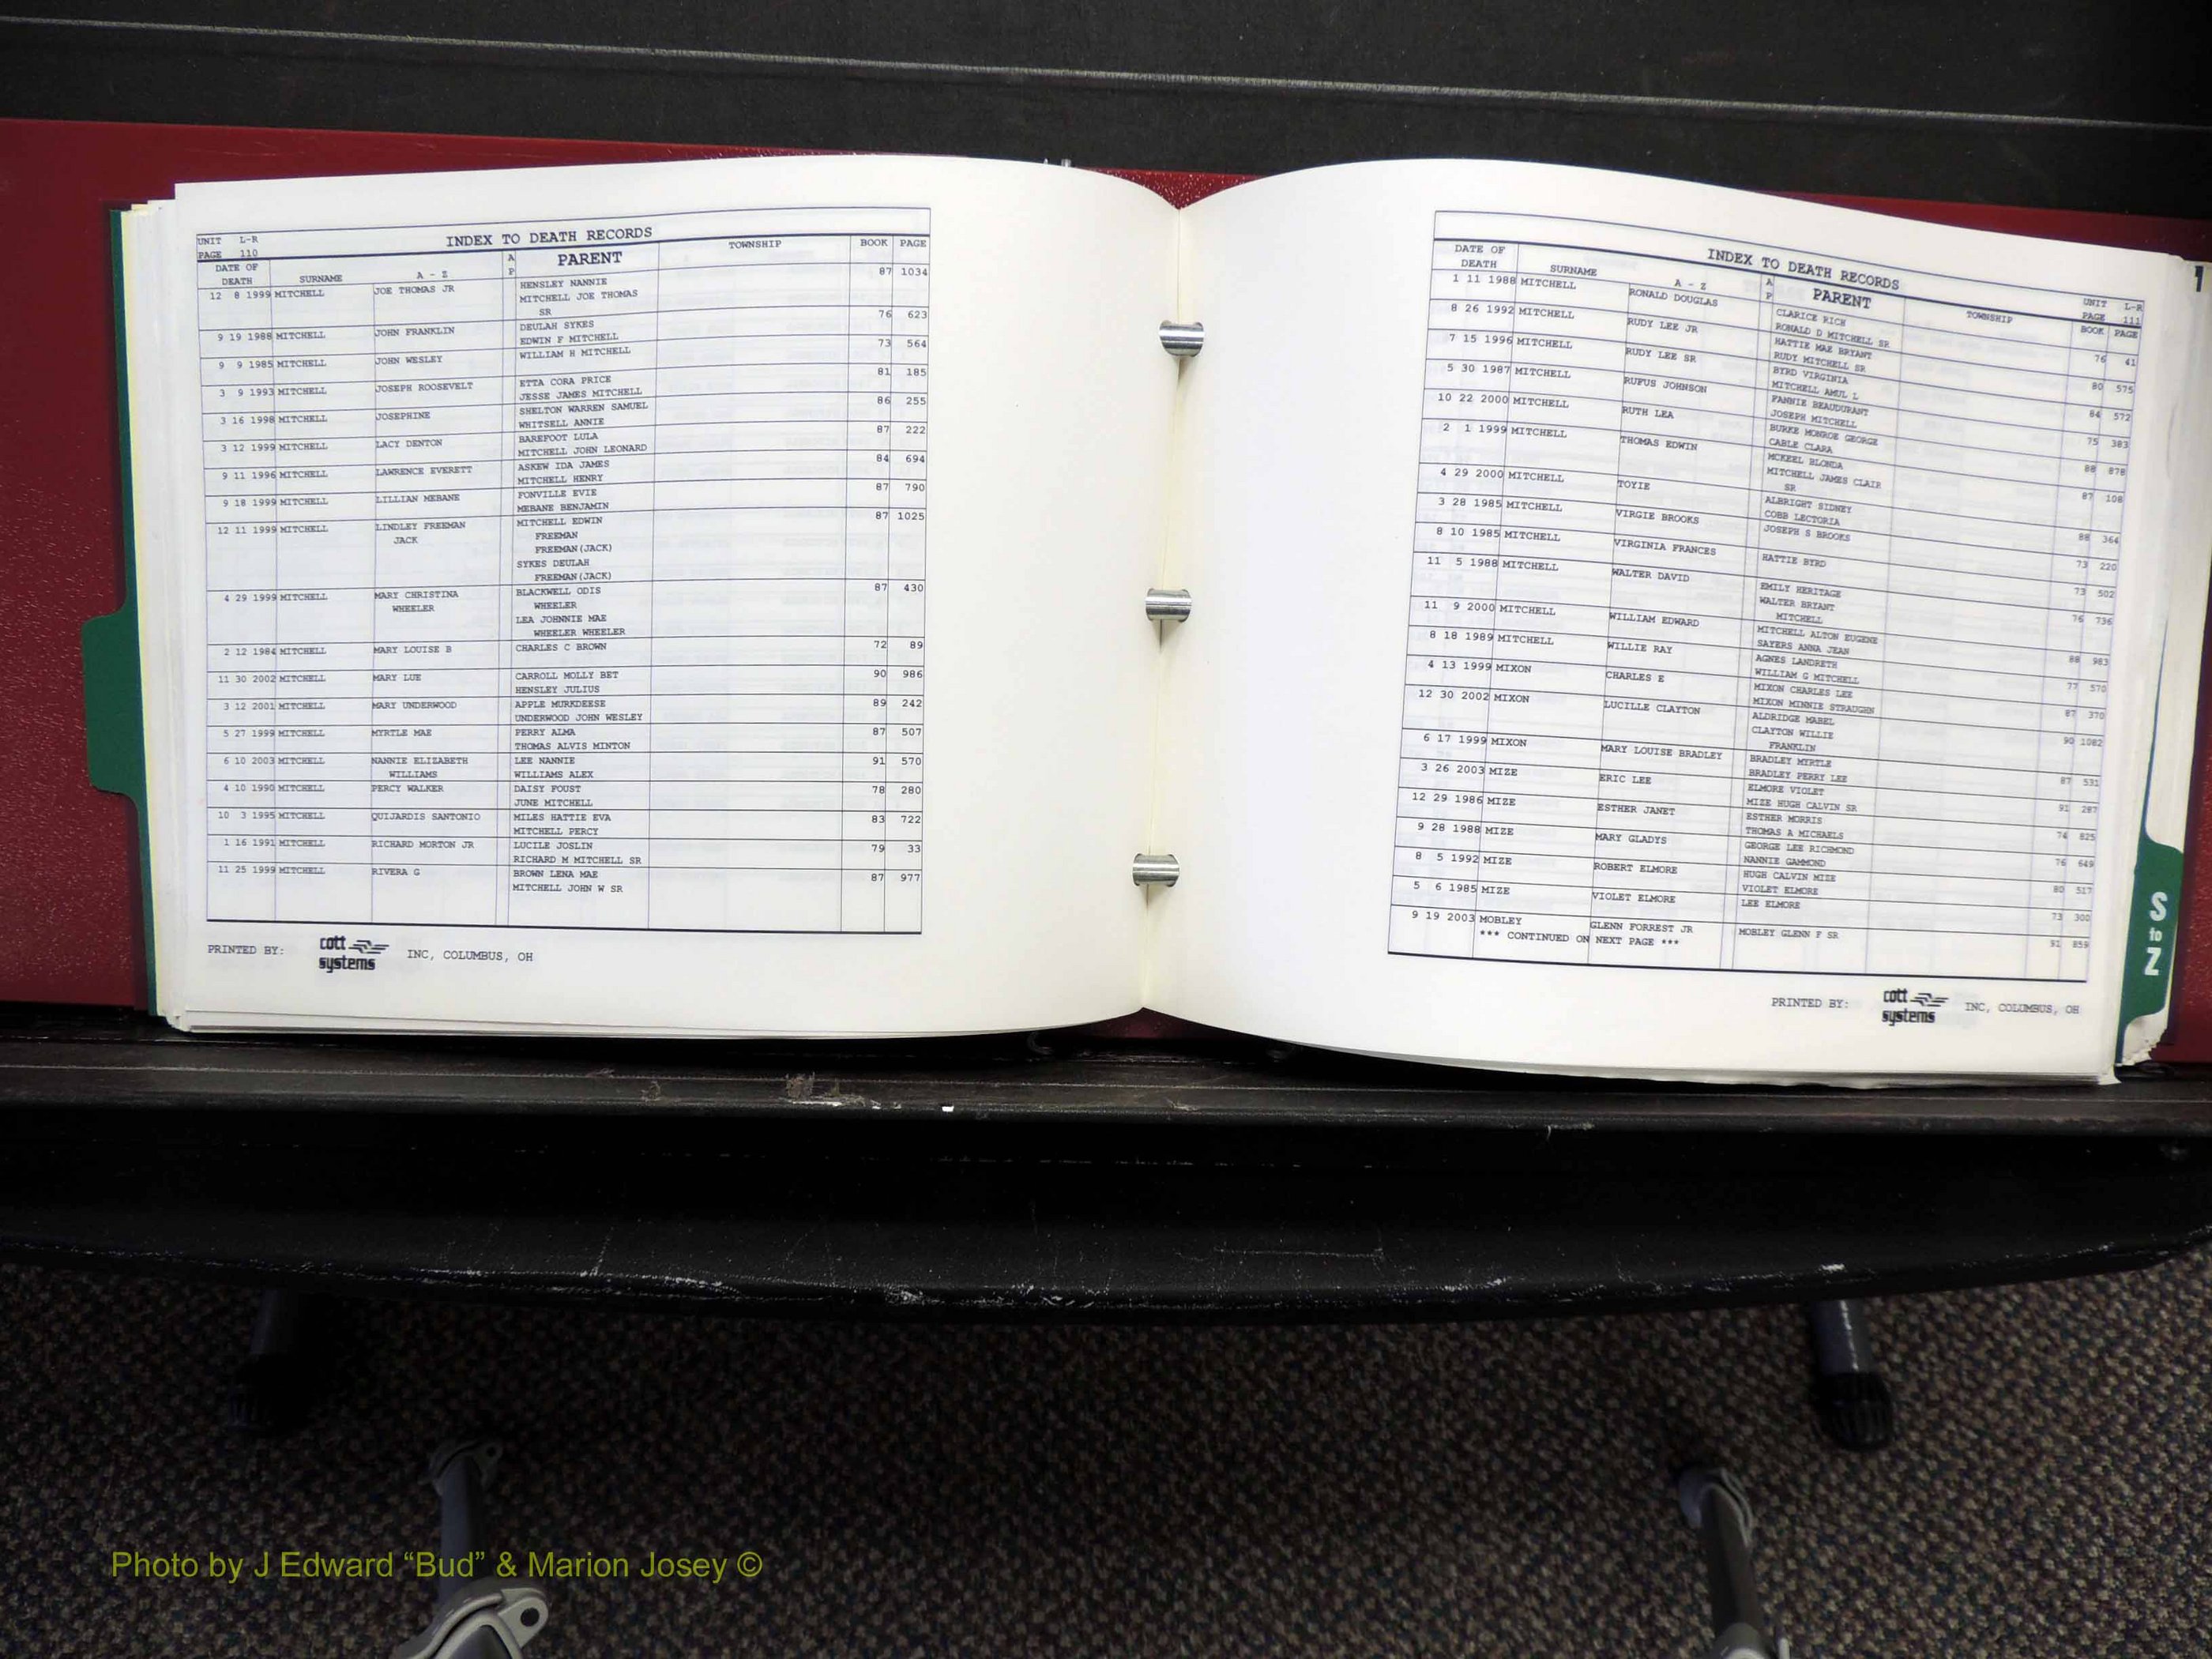 UNIT L-R INDEX TO DEATH RECORDS
PAGE 110
DATE OF DEATH SURNAME A - Z A P PARENT TOWNSHIP BOOK PAGE
12 8 1999 MITCHELL JOE THOMAS JR HENSLEY NANNIE 87 1034
MITCHELL JOE THOMAS
SR
9 19 1988 MITCHELL JOHN FRANKLIN DEULAH SYKES 76 623
EDWIN F MITCHELL
9 9 1985 MITCHELL JOHN WESLEY WILLIAM H MITCHELL 73 564
3 9 1993 MITCHELL JOSEPH ROOSEVELT ETTA CORA PRICE 81 185
JESSE JAMES MITCHELL
3 16 1998 MITCHELL JOSEPHINE SHELTON WARREN SAMUEL 86 255
WHITSELL ANNIE
3 12 1999 MITCHELL LACY DENTON BAREFOOT LULA 87 222
MITCHELL JOHN LEONARD
9 11 1996 MITCHELL LAWRENCE EVERETT ASKEW IDA JAMES 84 694
MITCHELL HENRY
9 18 1999 MITCHELL LILLIAN MEBANE FONVILLE EVIE 87 790
MEBANE BENJAMIN
12 11 1999 MITCHELL LINDLEY FREEMAN MITCHELL EDWIN 87 1025
JACK FREEMAN
FREEMAN(JACK)
SYKES DEULAH
FREEMAN(JACK)
4 29 1999 MITCHELL MARY CHRISTINA BLACKWELL ODIS 87 430
WHEELER WHEELER
LEA JOHNNIE MAE
WHEELER WHEELER
2 12 1984 MITCHELL MARY LOUISE B CHARLES C BROWN 72 89
11 30 2002 MITCHELL MARY LUE CARROLL MOLLY BET 90 986
HENSLEY JULIUS
3 12 2001 MITCHELL MARY UNDERWOOD APPLE MURKDEESE 89 242
UNDERWOOD JOHN WESLEY
5 27 1999 MITCHELL MYRTLE MAE PERRY ALMA 87 507
THOMAS ALVIS MINTON
6 10 2003 MITCHELL NANNIE ELIZABETH LEE NANNIE 91 570
WILLIAMS WILLIAMS ALEX
4 10 1990 MITCHELL PERCY WALKER DAISY FOUST 78 280
JUNE MITCHELL
10 3 1995 MITCHELL QUIJARDIS SANTONIO MILES HATTIE EVA 83 722
MITCHELL PERCY
1 16 1991 MITCHELL RICHARD MORTON JR LUCILE JOSLIN 79 33
RICHARD M MITCHELL SR
11 25 1999 MITCHELL RIVERA G BROWN LENA MAE 87 977
MITCHELL JOHN W SR
PRINTED BY: cott systems INC, COLUMBUS, OH
INDEX TO DEATH RECORDS UNIT L-R
PAGE 111
DATE OF DEATH SURNAME A - Z A P PARENT TOWNSHIP BOOK PAGE
1 11 1988 MITCHELL RONALD DOUGLAS CLARICE RICH 76 41
RONALD D MITCHELL SR
8 26 1992 MITCHELL RUDY LEE JR HATTIE MAE BRYANT 80 575
RUDY MITCHELL SR
7 15 1996 MITCHELL RUDY LEE SR BYRD VIRGINIA 84 572
MITCHELL AMUL L
5 30 1987 MITCHELL RUFUS JOHNSON FANNIE BEAUDURANT 75 383
JOSEPH MITCHELL
10 22 2000 MITCHELL RUTH LEA BURKE MONROE GEORGE 88 878
CABLE CLARA
2 1 1999 MITCHELL THOMAS EDWIN MCKEEL BLONDA 87 108
MITCHELL JAMES CLAIR
SR
4 29 2000 MITCHELL TOYIE ALBRIGHT SIDNEY 88 364
COBB LECTORIA
3 28 1985 MITCHELL VIRGIE BROOKS JOSEPH S BROOKS 73 220
8 10 1985 MITCHELL VIRGINIA FRANCES HATTIE BYRD 73 502
11 5 1988 MITCHELL WALTER DAVID EMILY HERITAGE 76 736
WALTER BRYANT
MITCHELL
11 9 2000 MITCHELL WILLIAM EDWARD MITCHELL ALTON EUGENE 88 983
SAYERS ANNA JEAN
8 18 1989 MITCHELL WILLIE RAY AGNES LANDRETH 77 570
WILLIAM G MITCHELL
4 13 1999 MIXON CHARLES E MIXON CHARLES LEE 87 370
MIXON MINNIE STRAUGHN
12 30 2002 MIXON LUCILLE CLAYTON ALDRIDGE MABEL 90 1082
CLAYTON WILLIE
FRANKLIN
6 17 1999 MIXON MARY LOUISE BRADLEY BRADLEY MYRTLE 87 531
BRADLEY PERRY LEE
3 26 2003 MIZE ERIC LEE ELMORE VIOLET 91 287
MIZE HUGH CALVIN SR
12 29 1986 MIZE ESTHER JANET ESTHER MORRIS 74 825
THOMAS A MICHAELS
9 28 1988 MIZE MARY GLADYS GEORGE LEE RICHMOND 76 649
NANNIE GAMMOND
8 5 1992 MIZE ROBERT ELMORE HUGH CALVIN MIZE 80 517
VIOLET ELMORE
5 6 1985 MIZE VIOLET ELMORE LEE ELMORE 73 300
9 19 2003 MOBLEY GLENN FORREST JR MOBLEY GLENN F SR 91 859
*** CONTINUED ON NEXT PAGE ***
PRINTED BY: cott systems INC, COLUMBUS, OH
S
to
Z
1
Photo by J Edward “Bud” & Marion Josey ©